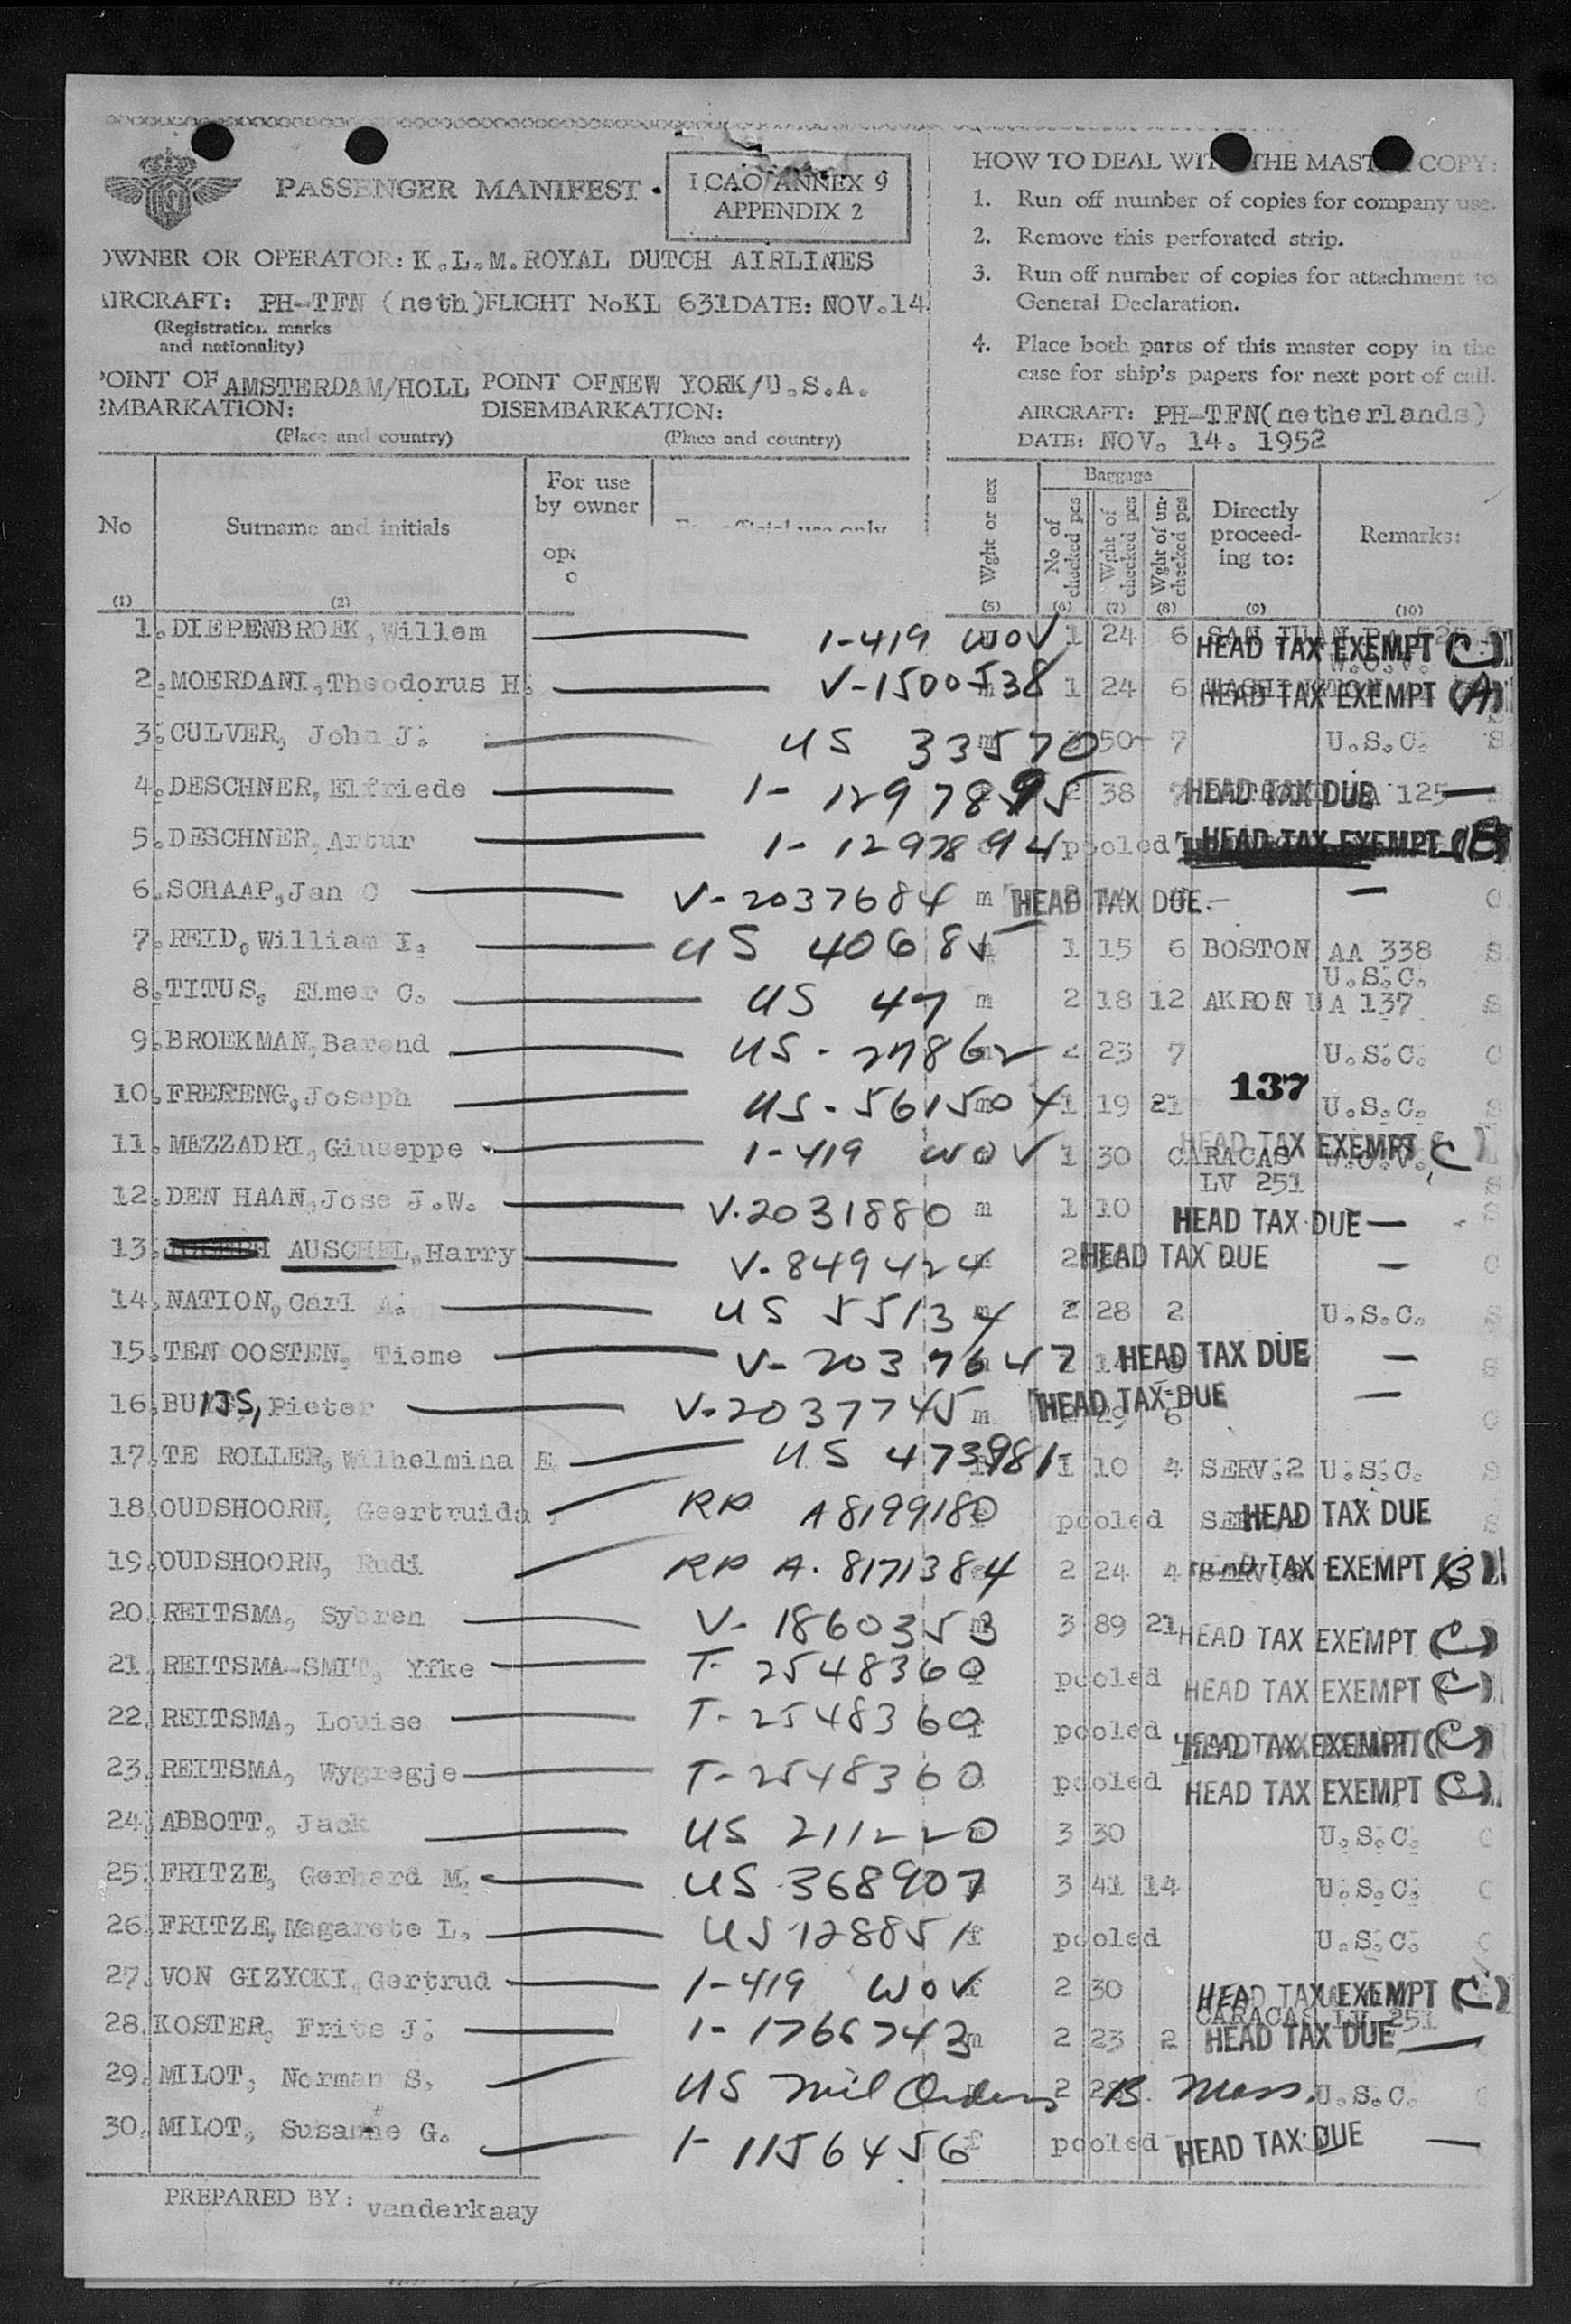 PASSENGER MANIFEST
ICAO ANNEX 9
APPENDIX 2
OWNER OR OPERATOR: K.L.M. ROYAL DUTCH AIRLINES
AIRCRAFT: PH-TFN (neth) FLIGHT No KL 631 DATE: NOV.14
(Registration marks
and nationality)
POINT OF AMSTERDAM/HOLL POINT OF NEW YORK/U.S.A.
EMBARKATION: DISEMBARKATION:
(Place and country) (Place and country)
HOW TO DEAL WITH THE MASTER COPY:
1. Run off number of copies for company use.
2. Remove this perforated strip.
3. Run off number of copies for attachment to
General Declaration.
4. Place both parts of this master copy in the
case for ship's papers for next port of call.
AIRCRAFT: PH-TFN(netherlands)
DATE: NOV. 14. 1952
No Surname and initials For use
by owner
Wght or sex Baggage No of checked pcs Wght of checked pcs Wght of un-checked pcs Directly proceed-ing to: Remarks:
(1) (2) (5) (6) (7) (8) (9) (10)
1. DIEPENBROEK, Willem 1-419 WOV 1 24 6 HEAD TAX EXEMPT (C)
2. MOERDANI, Theodorus H. V-1500538 1 24 6 HEAD TAX EXEMPT (A)
3. CULVER, John J. US 33570 50 7 U.S.C. S
4. DESCHNER, Elfriede 1-1297895 2 38 HEAD TAX DUE 125 —
5. DESCHNER, Artur 1-1297894 pooled HEAD TAX EXEMPT (B)
6. SCHAAP, Jan C V-2037684 m HEAD TAX DUE — C
7. REID, William I. US 40685 1 15 6 BOSTON AA 338 S
U.S.C.
8. TITUS, Elmer C. US 47 m 2 18 12 AKRON UA 137 S
9. BROEKMAN, Barend US-27862 2 23 7 U.S.C. C
137
10. FRERENG, Joseph US-561504 1 19 21 U.S.C. S
11. MEZZADRI, Giuseppe 1-419 WOV 1 30 CARACAS HEAD TAX EXEMPT (C)
LV 251 S
12. DEN HAAN, Jose J.W. V.2031880 m 1 10 HEAD TAX DUE — S
13. AUSCHEL, Harry V-849424 2 HEAD TAX DUE — C
14. NATION, Carl A. US 55134 2 28 2 U.S.C. S
15. TEN OOSTEN, Tieme V-2037647 HEAD TAX DUE — S
16. BUIJS, Pieter V-2037745 m 29 6 HEAD TAX DUE — C
17. TE ROLLER, Wilhelmina E. US 473981 1 10 4 SERV.2 U.S.C. S
18. OUDSHOORN, Geertruida RP A8199180 pooled HEAD TAX DUE S
19. OUDSHOORN, Rudi RP A-8171384 2 24 4 HEAD TAX EXEMPT (B)
20. REITSMA, Sybren V-1860353 3 89 21 HEAD TAX EXEMPT (C)
21. REITSMA-SMIT, Yfke T-2548360 pooled HEAD TAX EXEMPT (C)
22. REITSMA, Louise T-2548360 pooled HEAD TAX EXEMPT (C)
23. REITSMA, Wygregje T-2548360 pooled HEAD TAX EXEMPT (C)
24. ABBOTT, Jack US 211220 3 30 U.S.C. C
25. FRITZE, Gerhard M. US 368907 3 41 14 U.S.C. C
26. FRITZE, Magarete L. US 128851 f pooled U.S.C. C
27. VON GIZYCKI, Gertrud 1-419 WOV 2 30 HEAD TAX EXEMPT (C)
CARACAS LV 251
28. KOSTER, Frits J. 1-1766743 m 2 23 2 HEAD TAX DUE —
29. MILOT, Norman S. US Mil Orders 2 28 B Mass. U.S.C. C
30. MILOT, Susanne G. 1-1156456 f pooled HEAD TAX DUE —
PREPARED BY: vanderkaay